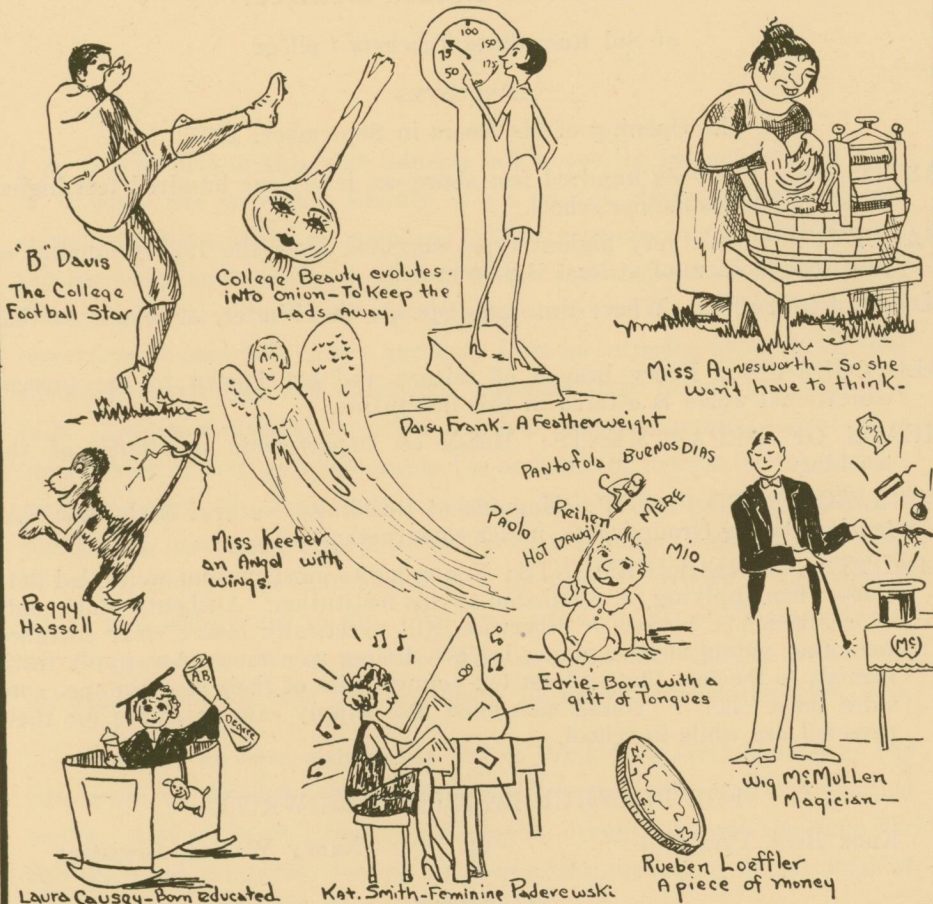 "B" Davis
The College
Football Star
College Beauty evolutes.
into onion-To Keep the
Lads Away.
100
75
150
50
175
Daisy Frank - A Featherweight
Miss Aynesworth - So she
won't have to think-
Peggy
Hassell
Miss Keefer
an Angel with
wings.
PANTOFOLA BUENOS DIAS
PÁOLO
Reihen
MÈRE
HOT DAWG!
MIO
Edrie-Born with a
gift of Tongues
Mc
Wig McMullen
Magician-
A.B.
Degree
Laura Causey-Born educated
Kat. Smith-Feminine Paderewski
Rueben Loeffler
A piece of money